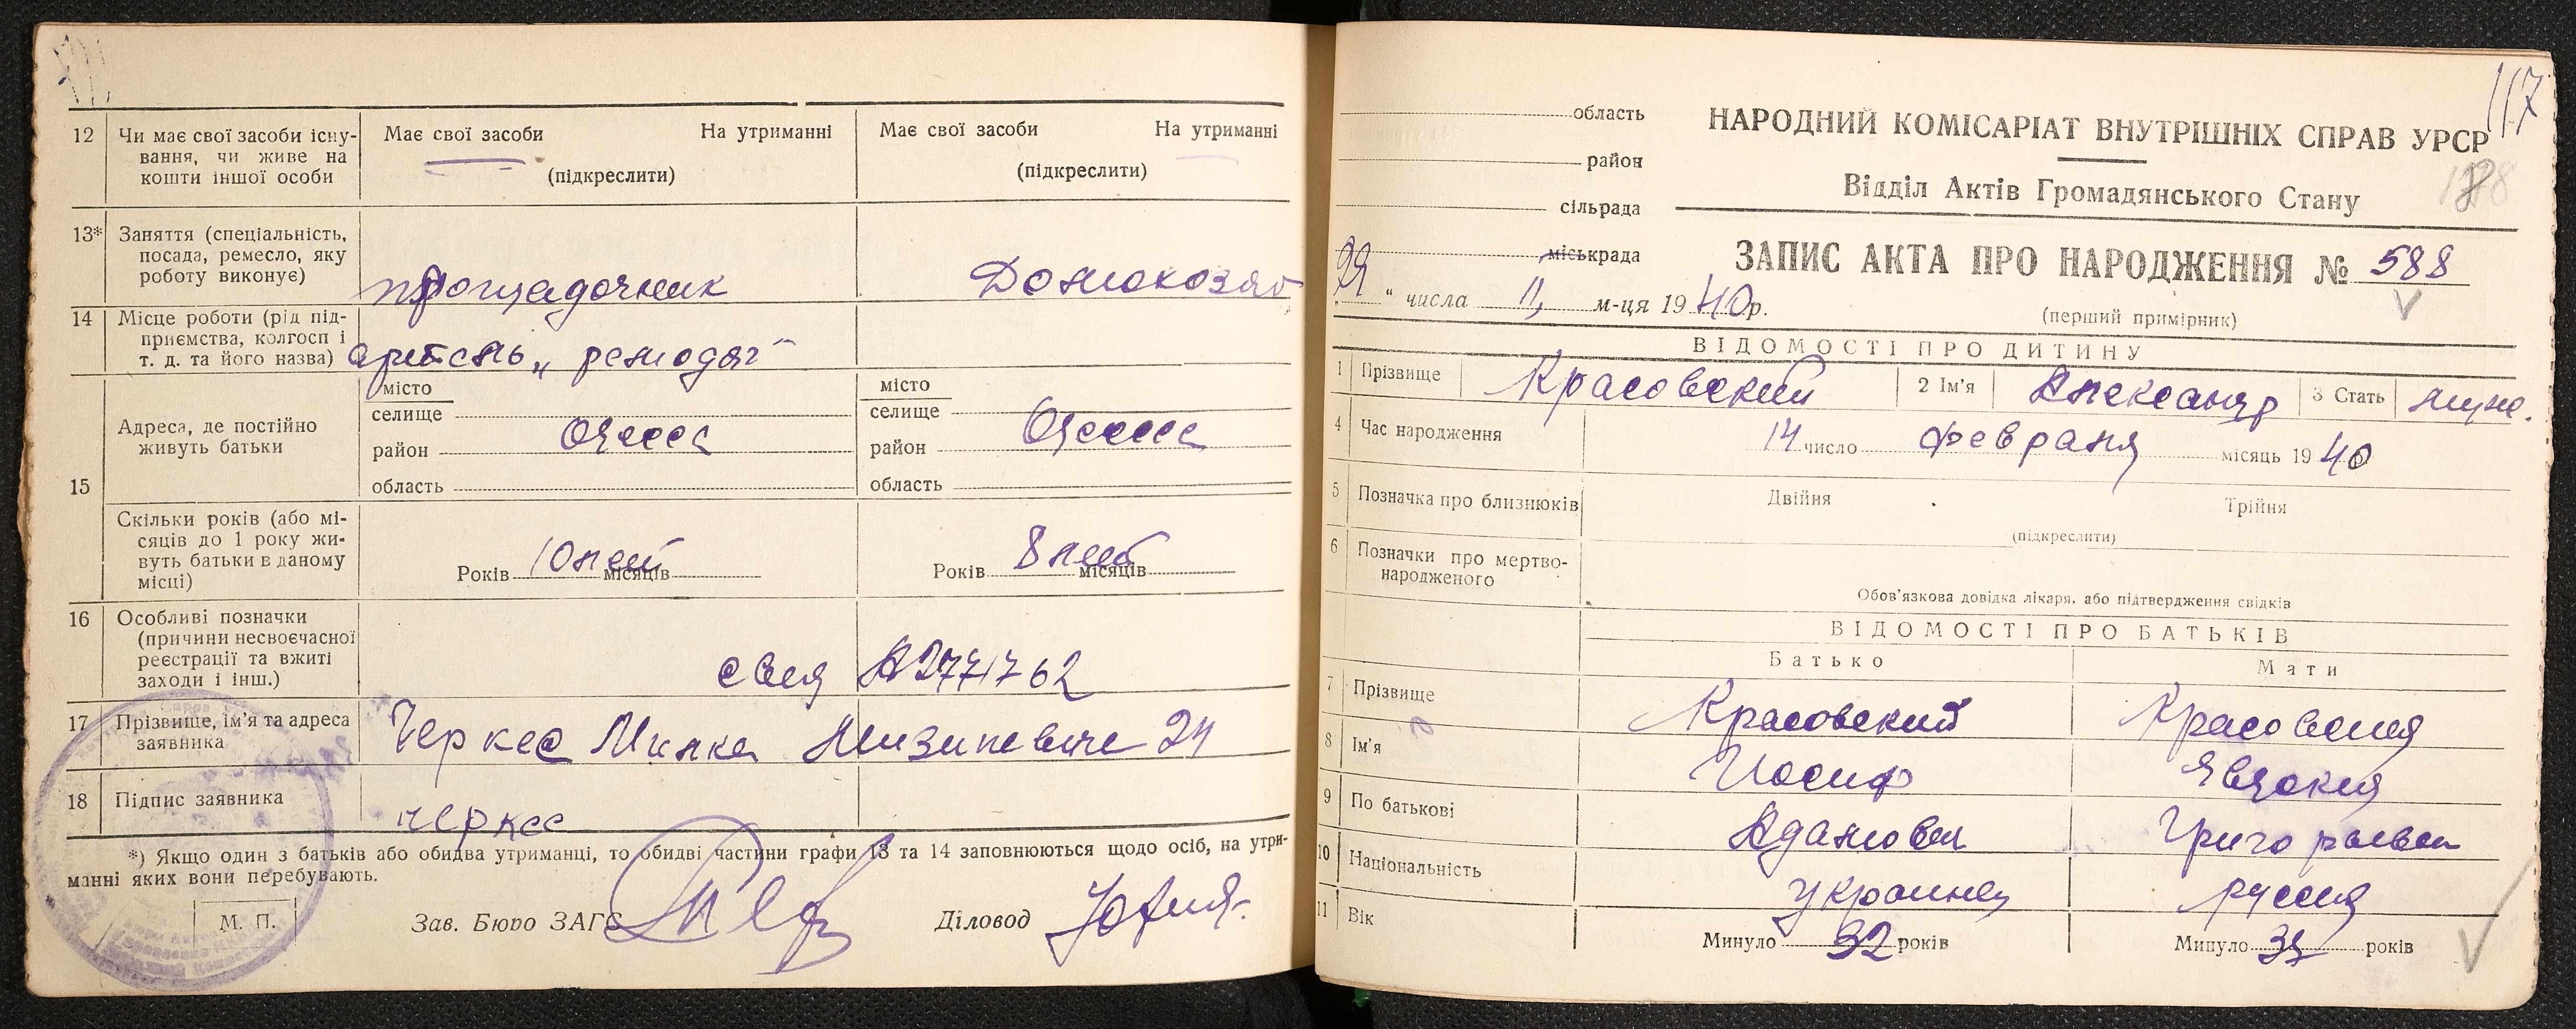 12 Чи має свої засоби існу-
вання, чи живе на
кошти іншої особи
Має свої засоби На утриманні
(підкреслити)
Має свої засоби На утриманні
(підкреслити)
13* Заняття (спеціальність,
посада, ремесло, яку
роботу виконує)
Домохозяй
14 Місце роботи (рід під-
приємства, колгосп і
т. д. та його назва)
артель „
15 Адреса, де постійно
живуть батьки
місто
селище
район Одесса
область
місто
селище
район Одесса
область
Скільки років (або мі-
сяців до 1 року жи-
вуть батьки в даному
місці)
Років 10 лет місяців
Років 8 лет місяців
16 Особливі позначки
(причини несвоєчасної
реєстрації та вжиті
заходи і інш.)
17 Прізвище, ім'я та адреса
заявника
Черкес 24
18 Підпис заявника
Черкес
*) Якщо один з батьків або обидва утриманці, то обидві частини графи 13 та 14 заповнюються щодо осіб, на утри-
манні яких вони перебувають.
М. П. Зав. Бюро ЗАГС Діловод
117
область
район
сільрада
міськрада
НАРОДНИЙ КОМІСАРІАТ ВНУТРІШНІХ СПРАВ УРСР
Відділ Актів Громадянського Стану
ЗАПИС АКТА ПРО НАРОДЖЕННЯ № 588
" числа м-ця 1940р.
(перший примірник)
ВІДОМОСТІ ПРО ДИТИНУ
1 Прізвище Красовский 2 Ім'я Александр 3 Стать муж.
4 Час народження 14 число февраля місяць 1940 р.
5 Позначка про близнюків Двійня Трійня
(підкреслити)
6 Позначки про мертво-
народженого
Обов'язкова довідка лікаря, або підтвердження свідків
ВІДОМОСТІ ПРО БАТЬКІВ
Батько Мати
7 Прізвище Красовский Красовская
8 Ім'я Иосиф Явдокия
9 По батькові Адамович Григорьевн
10 Національність Украинец русская
11 Вік Минуло 32 років Минуло років